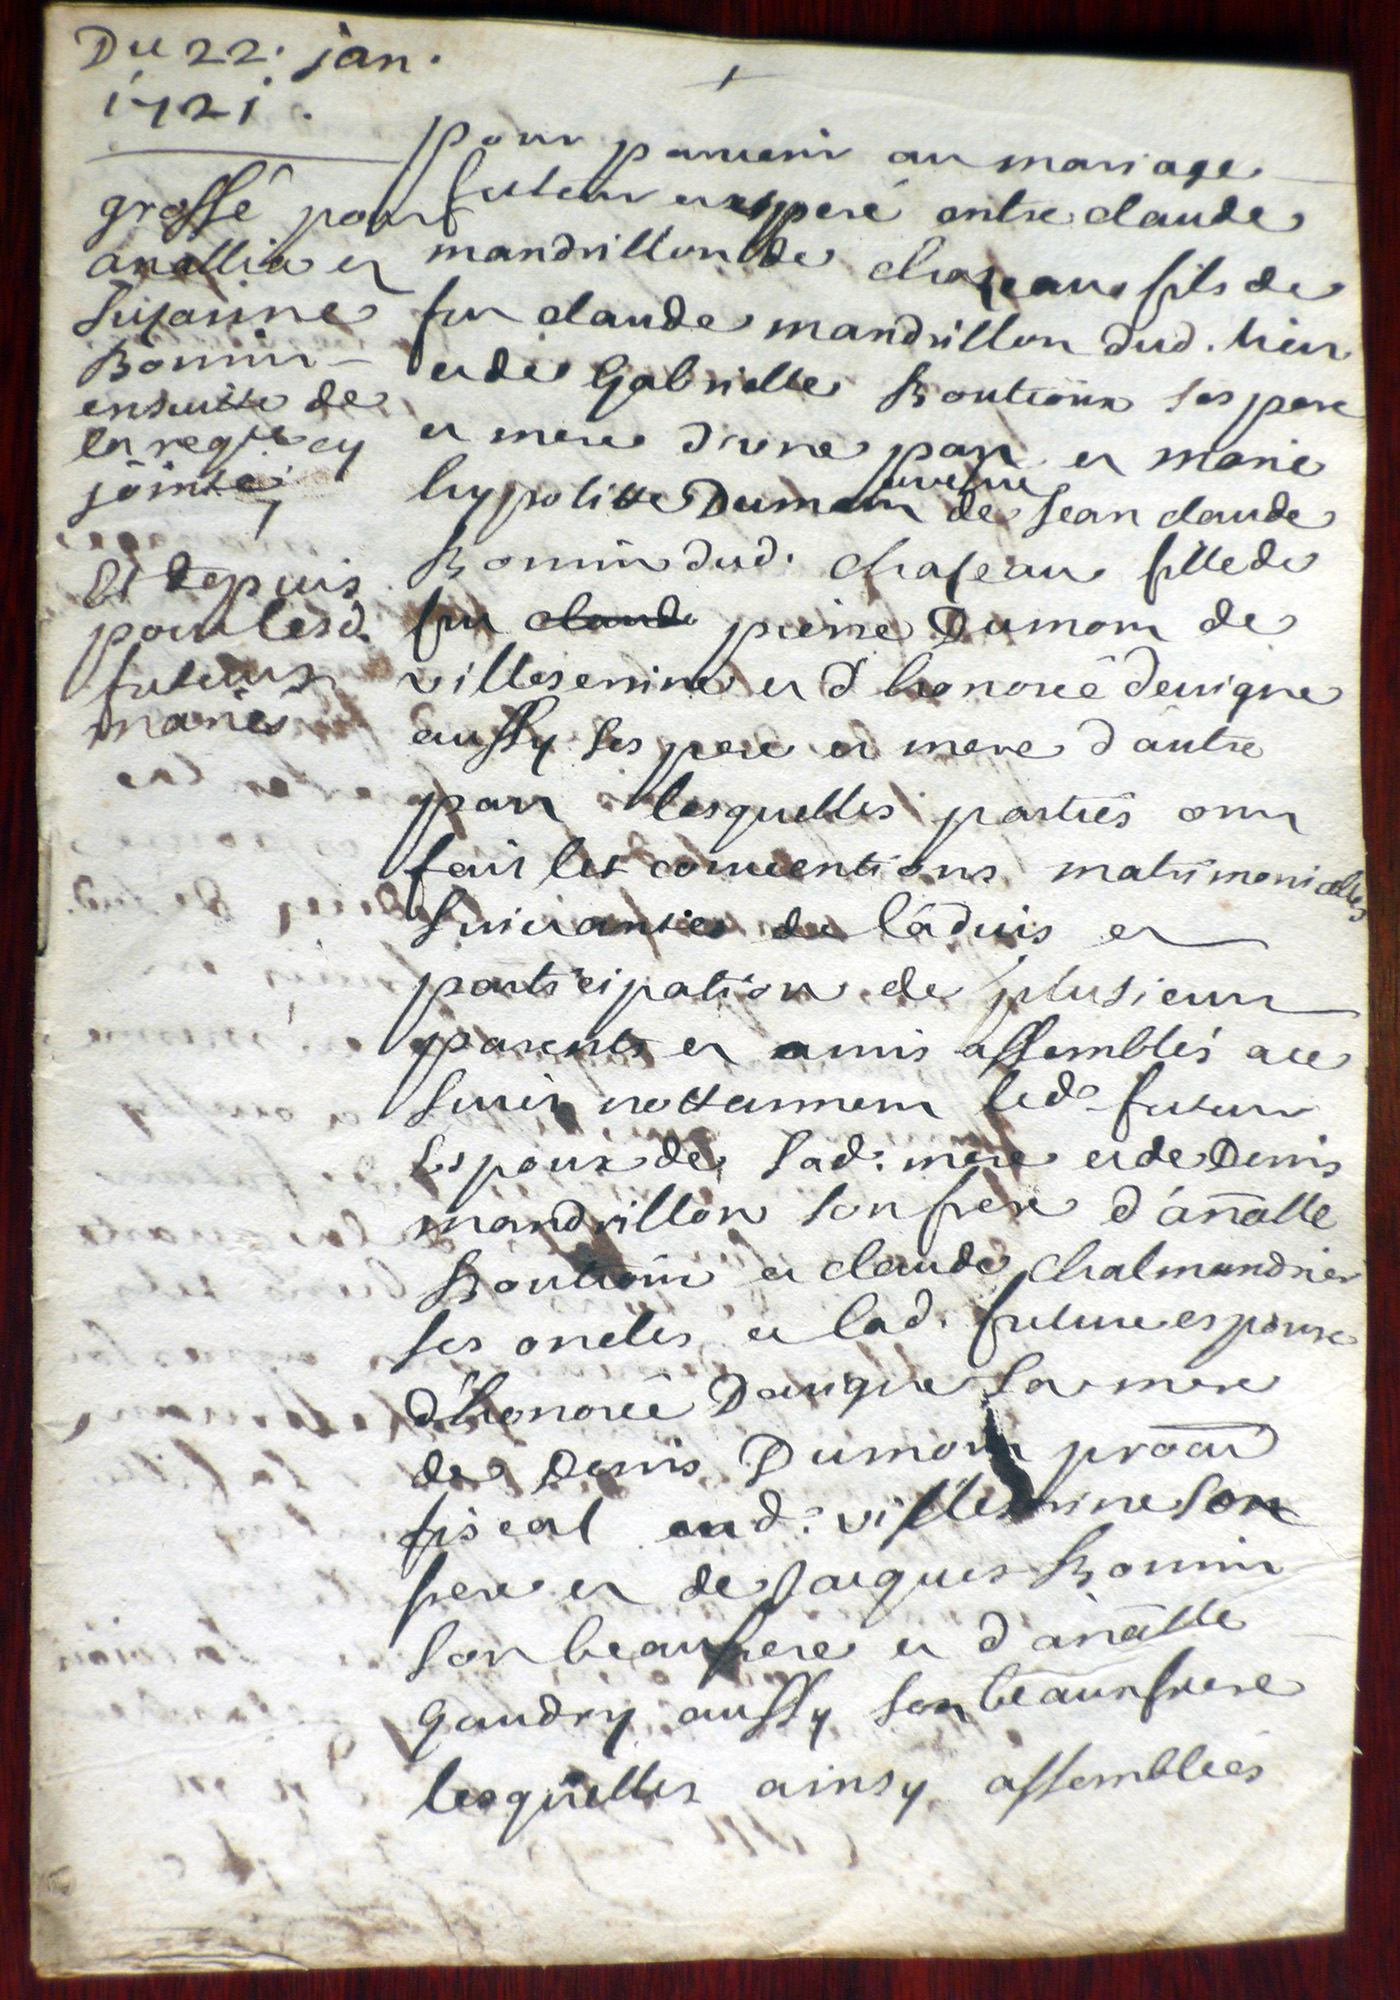 Du 22. jan.
1721.
grossé pour
anallia et
Susanne
Bonnin
ensuitte de
la reqte cy
jointe,
Et depuis
pour lesd.
futurs
mariés
pour parvenir au mariage
futur et esperé entre claude
mandrillon de chaseau fils de
fut claude mandrillon dud. lieu
et de Gabrielle Boutioux ses pere
et mere d'une part et marie
veufve
hypolitte Dumont de Jean claude
Bonnin dud. chaseau fille de
fut claude pierre Dumont de
villeserine et d'honorée devigne
aussy ses pere et mere d'autre
part lesquelles parties ont
fait les conventions matrimonialles
suivantes de l'advis et
participation de plusieurs
parents et amis assemblés a ce
sujet nottamment led. futur
espoux de sad. mere et de Denis
mandrillon son frere d'anathle
Boutioux et claude chalmandrier
ses oncles et lad. future espouse
d'honorée Devigne sa mere
de Denis Dumont procur
fiscal aud. villeserine son
frere et de Jacques Bonnin
son beaufrere et d'anathle
gaudry aussy son beaunfrere
lesquelles ainsy assemblées